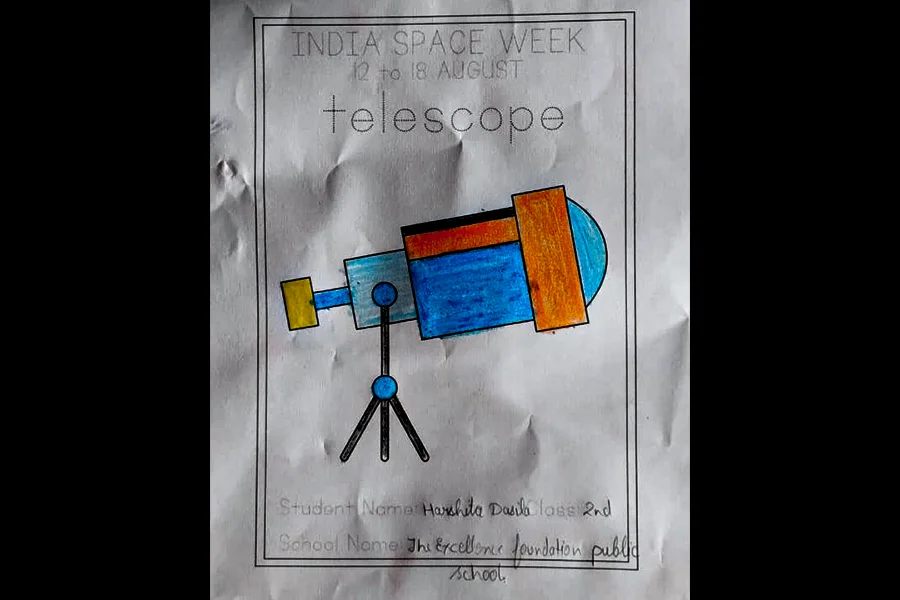 INDIA SPACE WEEK
12 to 18 AUGUST
telescope
Student Name Harshita Dasila Class 2nd
School Name The Excellence foundation public
school